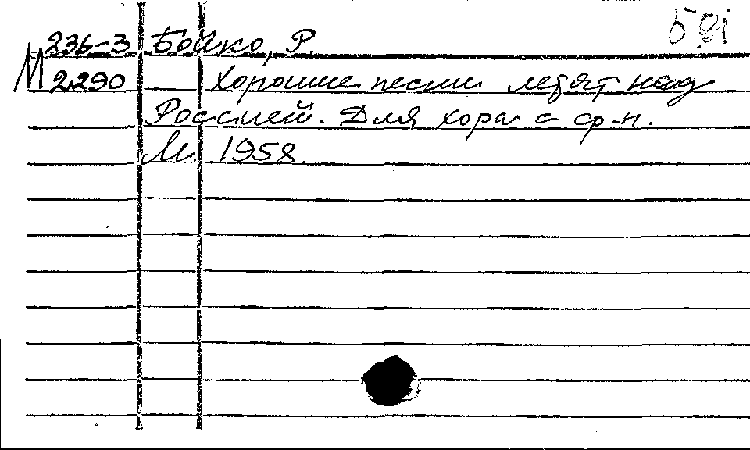 591
236-3 Бойко, Р.
М 2290 Хорошие песни летят над
Россией. Для хора с ф-п.
М. 1958